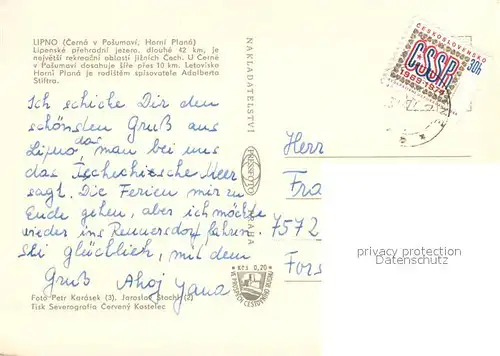 LIPNO (Černá v Pošumaví, Horní Planá)
Lipenské přehradní jezero, dlouhé 42 km, je
největší rekreační oblastí jižních Čech. U Černé
v Pošumaví dosahuje šíře přes 10 km. Letovisko
Horní Planá je rodištěm spisovatele Adalberta
Stiftra.
Ich schicke Dir den
schönsten Gruß aus
Lipno das man bei uns
das Tschechische Meer
sagt. Die Ferien mir zu
Ende gehen, aber ich möchte
wieder ins Rennersdorf fahren.
Ski glücklich, mit dem
Gruß Ahoj Jana
Foto Petr Karásek (3), Jaroslav Stachl (2)
Tisk Severografia Červený Kostelec
NAKLADATELSTVÍ
PRESSFOTO
PRAHA
Kčs 0,20
VE PROSPĚCH CESTOVNÍHO RUCHU
ČESKOSLOVENSKO
30h
ČSSR
1969-1979
Herr
Fra
7572
Fors
privacy protection
Datenschutz